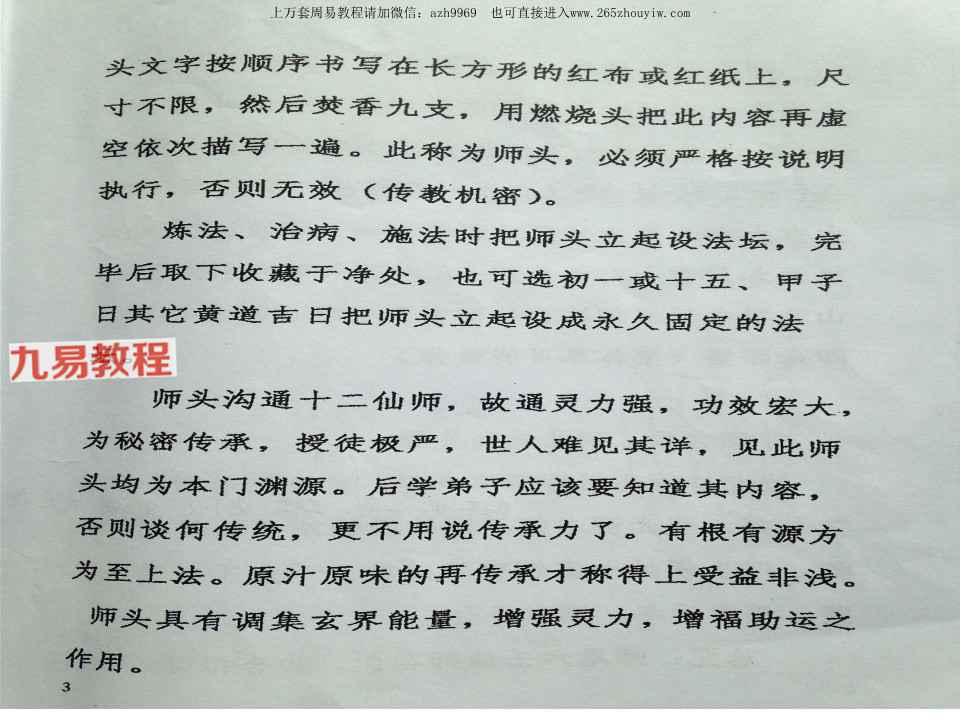 上万套周易教程请加微信：azh9969 也可直接进入www.265zhouyiw.com
头文字按顺序书写在长方形的红布或红纸上，尺
寸不限，然后焚香九支，用燃烧头把此内容再虚
空依次描写一遍。此称为师头，必须严格按说明
执行，否则无效（传教机密）。
炼法、治病、施法时把师头立起设法坛，完
毕后取下收藏于净处，也可选初一或十五、甲子
日其它黄道吉日把师头立起设成永久固定的法
九易教程
。
师头沟通十二仙师，故通灵力强，功效宏大，
为秘密传承，授徒极严，世人难见其详，见此师
头均为本门渊源。后学弟子应该要知道其内容，
否则谈何传统，更不用说传承力了。有根有源方
为至上法。原汁原味的再传承才称得上受益非浅。
师头具有调集玄界能量，增强灵力，增福助运之
作用。
3